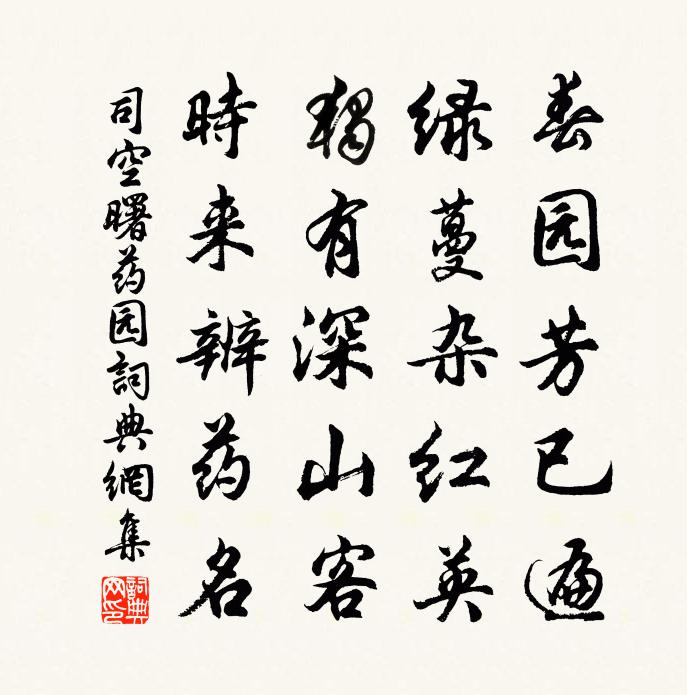 春园芳已遍
绿蔓杂红英
独有深山客
时来辨药名
司空曙药园詞典網集
詞典网印